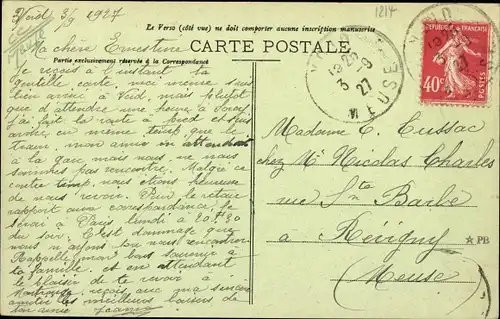 Void 3/9 1927
Le Verso (côté vue) ne doit comporter aucune inscription manuscrite
1214
CARTE POSTALE
Partie exclusivement réservée à la Correspondance
Ma chère Ernestine
Je reçois à l'instant ta
gentille carte, moi même suis
bien arrivée à Void, mais plutôt
que d'attendre une heure à Sorcy
j'ai fait la route à pied et suis
arrivée en même temps que le
train, mon amie m'attendait
à la gare mais nous ne nous
sommes pas rencontrées. Malgré ce
contre temps, nous étions heureuses
de nous revoir. Pour le retour
rapport aux correspondances, je
serai à Paris lundi à 20h30
du soir. C'est dommage que
nous ne ayons pu nous rencontrer.
Rappelle mon bon souvenir à
ta famille et en attendant
le plaisir de te revoir à
reçois, ma sincère
amitié les meilleurs baisers de
ton amie Jeanne
VOID
3 -9
27
MEUSE
40c
Madame E. Cussac
chez Mr Nicolas Charles
rue Ste Barbe
à Révigny
(Meuse)
PB